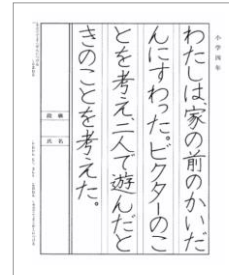 小学四年
わたしは、家の前のかいだ
んにすわった。ビクターのこ
とを考え、二人で遊んだと
きのことを考えた。
氏名